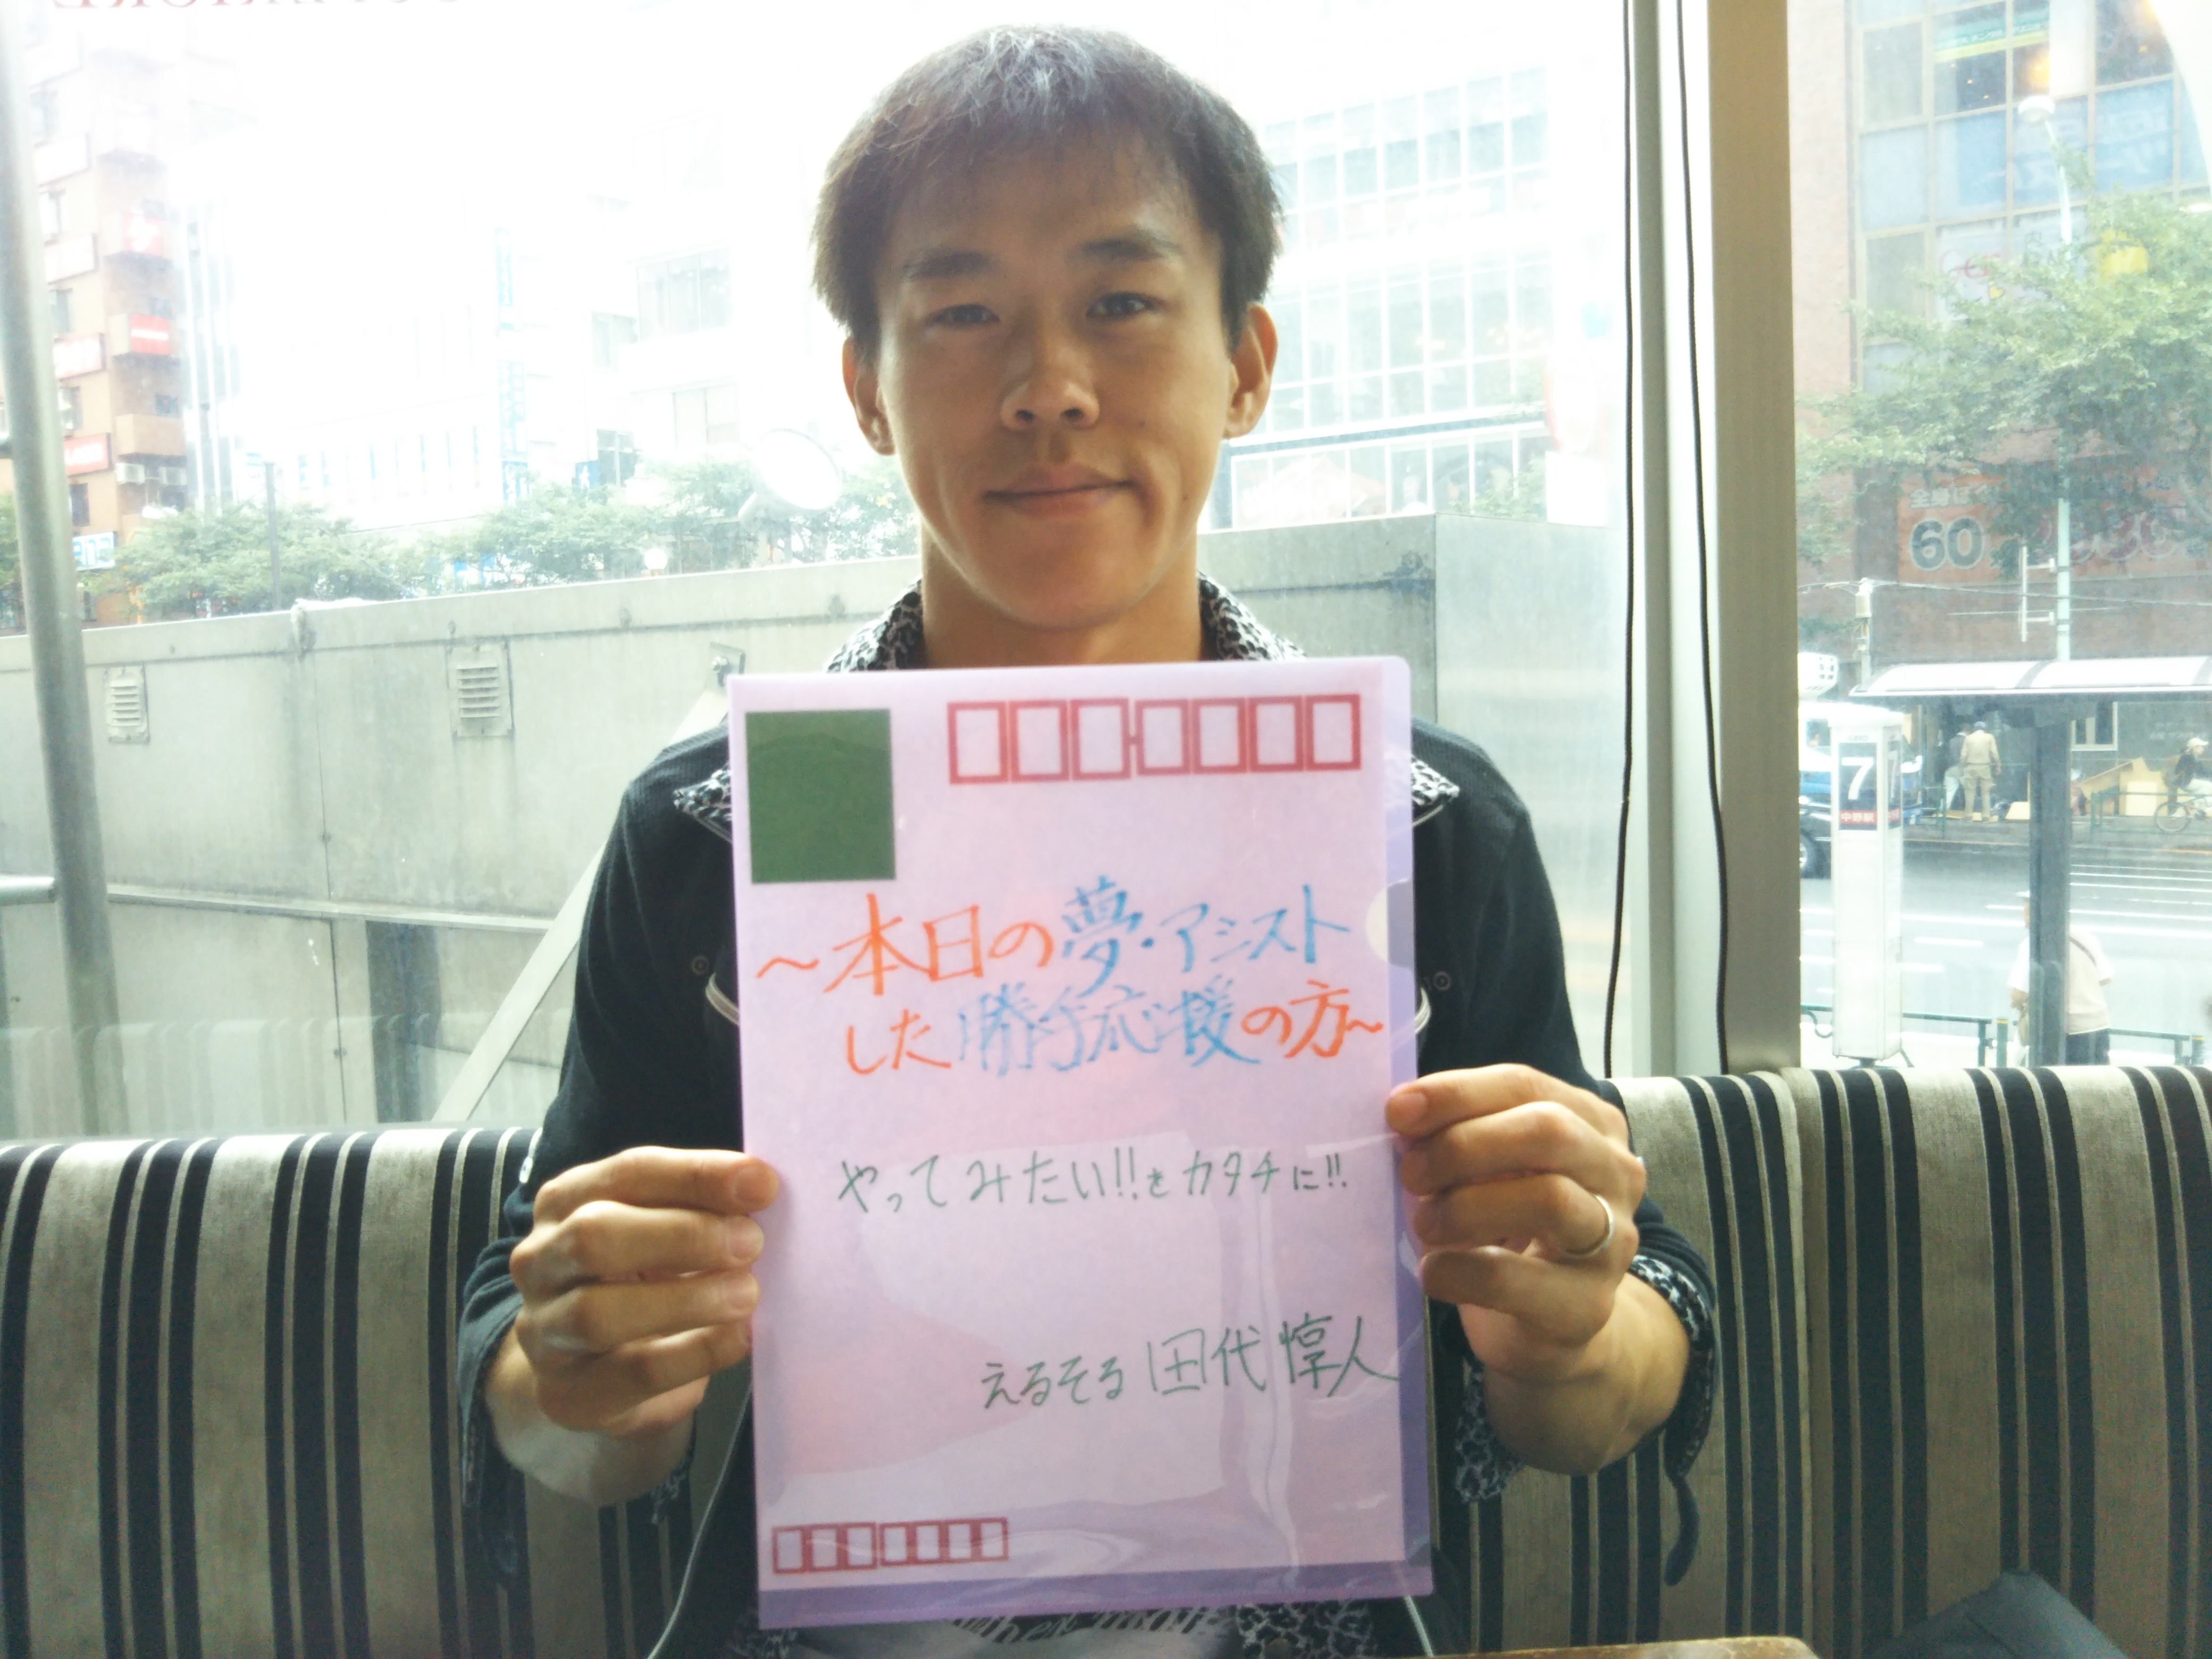 ～本日の夢・アシスト
した勝手応援の方～
やってみたい!!をカタチに!!
えるそる 田代 惇人
60
7
中野駅